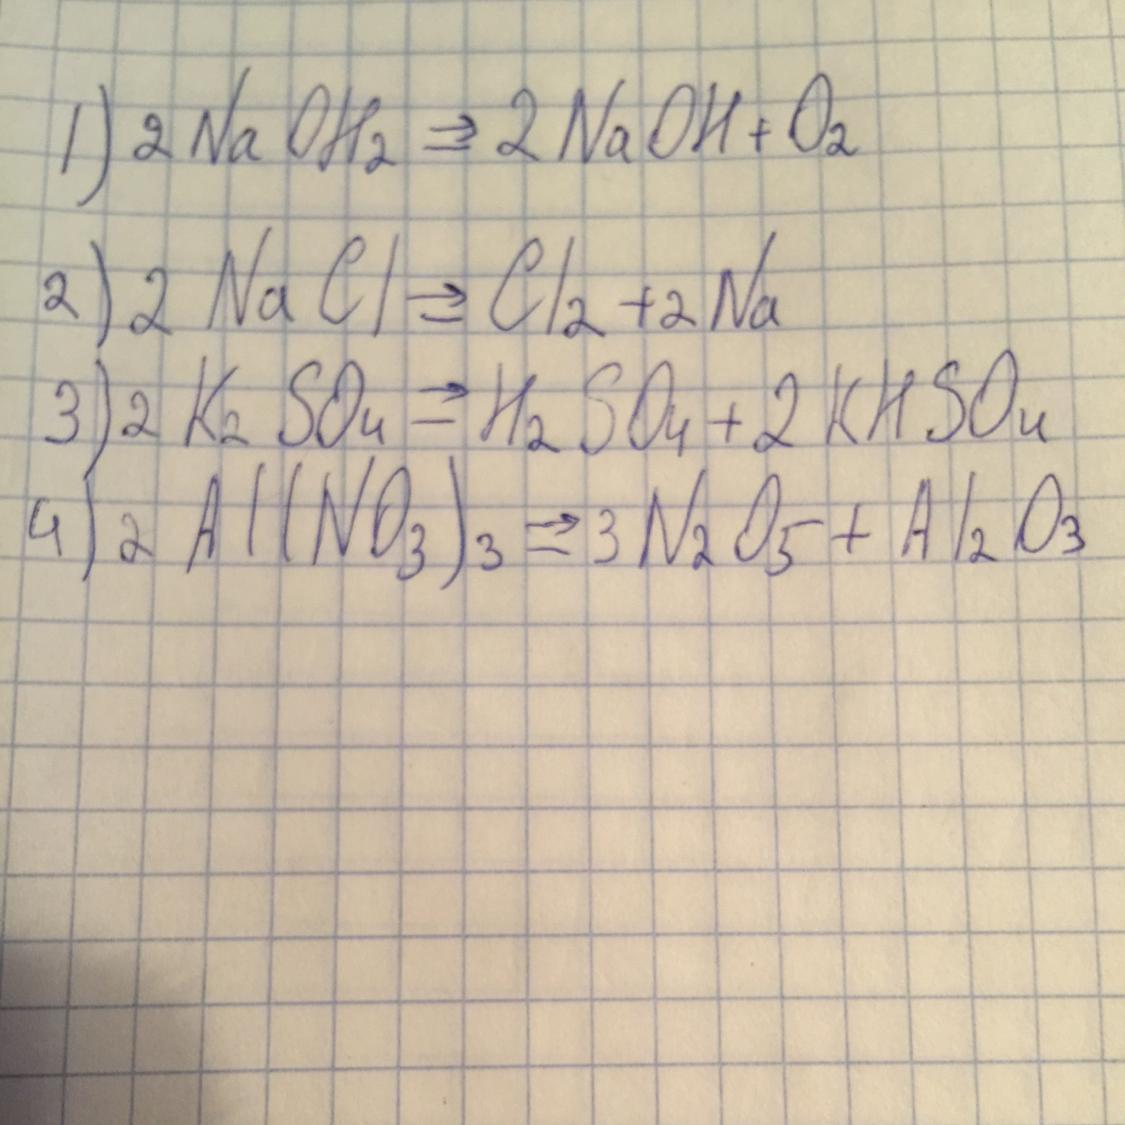 1) 2 NaOH₂ ⇒ 2 NaOH + O₂
2) 2 NaCl ⇒ Cl₂ + 2 Na
3) 2 K₂SO₄ ⇒ H₂SO₄ + 2 KHSO₄
4) 2 Al(NO₃)₃ ⇒ 3 N₂O₅ + Al₂O₃